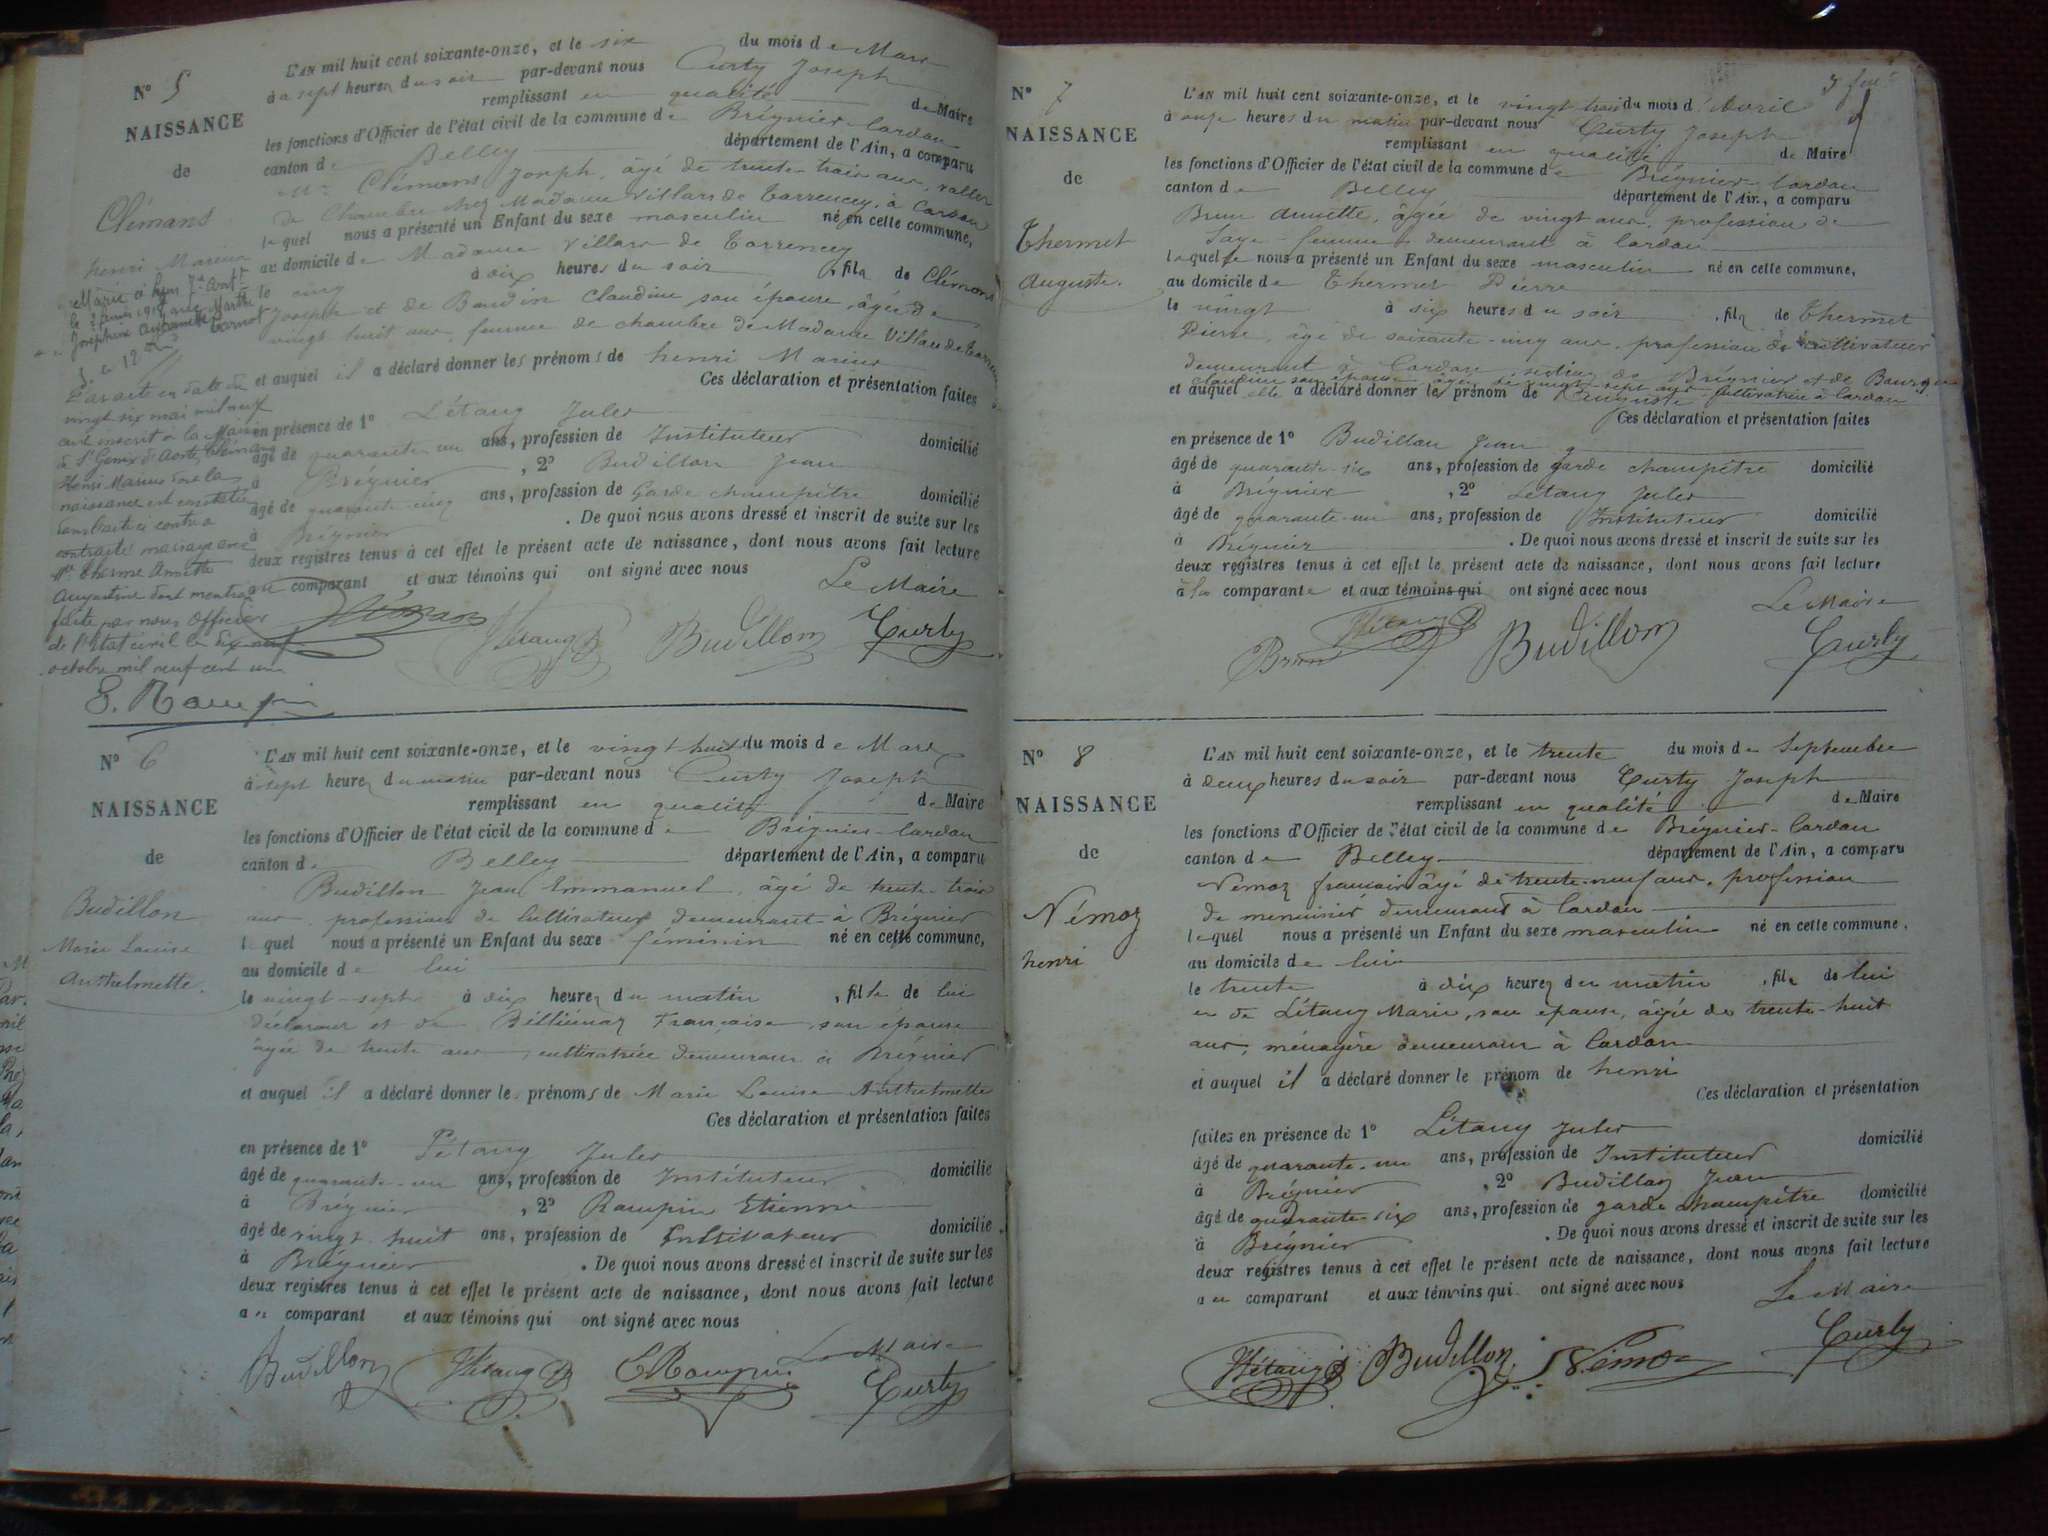 N° 5
NAISSANCE
de
Clémans
henri Marius
Marié à Lyon 7e Arrt
le 2 janvier 1919 avec Marthe
Joséphine Antoinette Carnot
Par acte en date du
vingt six mai mil neuf
cent inscrit à la Mairie
à St Genix d'Aoste, Clémans
Henri Marius dont la
naissance est constatée
dans l'acte ci contre a
contracté mariage avec
Mlle Therme Annette
Augustine dont mention
faite par nous Officier
de l'Etat civil le dix neuf
octobre mil neuf cent un
E. Rampin
L'AN mil huit cent soixante-onze, et le six du mois de Mars
à sept heures du soir par-devant nous Curty Joseph
remplissant en qualité de Maire
les fonctions d'Officier de l'état civil de la commune de Brégnier-Cordon
canton de Belley département de l'Ain, a comparu
Mr Clémans Joseph, âgé de trente trois ans, valet
de Chambre chez Madame Villars de Torrencey, à Cordon
lequel nous a présenté un Enfant du sexe masculin né en cette commune,
au domicile de Madame Villars de Torrencey
le cinq à dix heures du soir, fils de Clémans
Joseph et de Baudin Claudine son épouse, âgée de
vingt huit ans, femme de chambre de Madame Villars de
et auquel il a déclaré donner les prénoms de henri Marius
Ces déclaration et présentation faites
en présence de 1° Létang Jules
âgé de quarante-un ans, profession de Instituteur domicilié
à Brégnier, 2° Budillon Jean
âgé de quarante-cinq ans, profession de Garde champêtre domicilié
à Brégnier. De quoi nous avons dressé et inscrit de suite sur les
deux registres tenus à cet effet le présent acte de naissance, dont nous avons fait lecture
au comparant et aux témoins qui ont signé avec nous
Le Maire
Clémans JLétang Budillon Curty
N° 6
NAISSANCE
de
Budillon
Marie Louise
Anthelmette.
L'AN mil huit cent soixante-onze, et le vingt huit du mois de Mars
à sept heures du matin par-devant nous Curty Joseph
remplissant en qualité de Maire
les fonctions d'Officier de l'état civil de la commune de Brégnier-Cordon
canton de Belley département de l'Ain, a comparu
Budillon Jean Emmanuel, âgé de trente-trois
ans, profession de Cultivateur demeurant à Brégnier
lequel nous a présenté un Enfant du sexe féminin né en cette commune,
au domicile de lui
le vingt-sept à dix heures du matin, fille de lui
déclarant et de Billiémaz Françoise, son épouse
âgée de trente ans, cultivatrice demeurant à Brégnier
et auquel il a déclaré donner les prénoms de Marie Louise Anthelmette
Ces déclaration et présentation faites
en présence de 1° Létang Jules
âgé de quarante-un ans, profession de Instituteur domicilié
à Brégnier, 2° Rampin Etienne
âgé de vingt-huit ans, profession de Cultivateur domicilié
à Brégnier. De quoi nous avons dressé et inscrit de suite sur les
deux registres tenus à cet effet le présent acte de naissance, dont nous avons fait lecture
au comparant et aux témoins qui ont signé avec nous
Le Maire
Budillon JLétang E Rampin Curty
N° 7
NAISSANCE
de
Thermet
Auguste.
L'AN mil huit cent soixante-onze, et le vingt trois du mois d'Avril
à onze heures du matin par-devant nous Curty Joseph
remplissant en qualité de Maire
les fonctions d'Officier de l'état civil de la commune de Brégnier-Cordon
canton de Belley département de l'Ain, a comparu
Brun Annette, âgée de vingt ans, profession de
Sage-femme demeurant à Cordon
laquelle nous a présenté un Enfant du sexe masculin né en cette commune,
au domicile de Thermet Pierre
le vingt à six heures du soir, fils de Thermet
Pierre, âgé de soixante-cinq ans, profession de cultivateur
demeurant à Cordon, section de Brégnier et de
claudine son épouse âgée de vingt sept ans cultivatrice à Cordon
et auquel elle a déclaré donner le prénom de Auguste
Ces déclaration et présentation faites
en présence de 1° Budillon Jean
âgé de quarante-six ans, profession de garde champêtre domicilié
à Brégnier, 2° Létang Jules
âgé de quarante-un ans, profession de Instituteur domicilié
à Brégnier. De quoi nous avons dressé et inscrit de suite sur les
deux registres tenus à cet effet le présent acte de naissance, dont nous avons fait lecture
à la comparante et aux témoins qui ont signé avec nous
Le Maire
Brun JLétang Budillon Curty
N° 8
NAISSANCE
de
Némoz
henri
L'AN mil huit cent soixante-onze, et le trente du mois de Septembre
à deux heures du soir par-devant nous Curty Joseph
remplissant en qualité de Maire
les fonctions d'Officier de l'état civil de la commune de Brégnier-Cordon
canton de Belley département de l'Ain, a comparu
Némoz françois âgé de trente-neuf ans, profession
de menuisier demeurant à Cordon
lequel nous a présenté un Enfant du sexe masculin né en cette commune,
au domicile de lui
le trente à dix heures du matin, fils de lui
et de Létang Marie, son épouse, âgée de trente-huit
ans, ménagère demeurant à Cordon
et auquel il a déclaré donner le prénom de henri
Ces déclaration et présentation
faites en présence de 1° Létang Jules
âgé de quarante-un ans, profession de Instituteur domicilié
à Brégnier, 2° Budillon Jean
âgé de quarante-six ans, profession de garde champêtre domicilié
à Brégnier. De quoi nous avons dressé et inscrit de suite sur les
deux registres tenus à cet effet le présent acte de naissance, dont nous avons fait lecture
au comparant et aux témoins qui ont signé avec nous
Le Maire
JLétang Budillon Némoz Curty